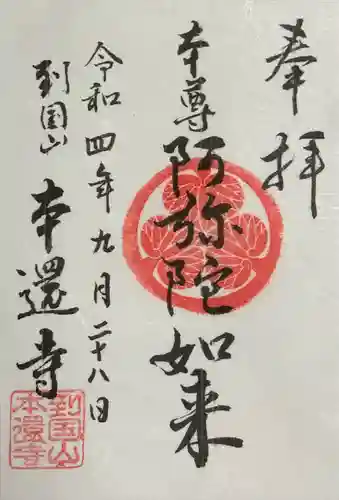 奉拝
本尊阿弥陀如来
令和四年九月二十八日
到国山
本還寺
到国山
本還寺